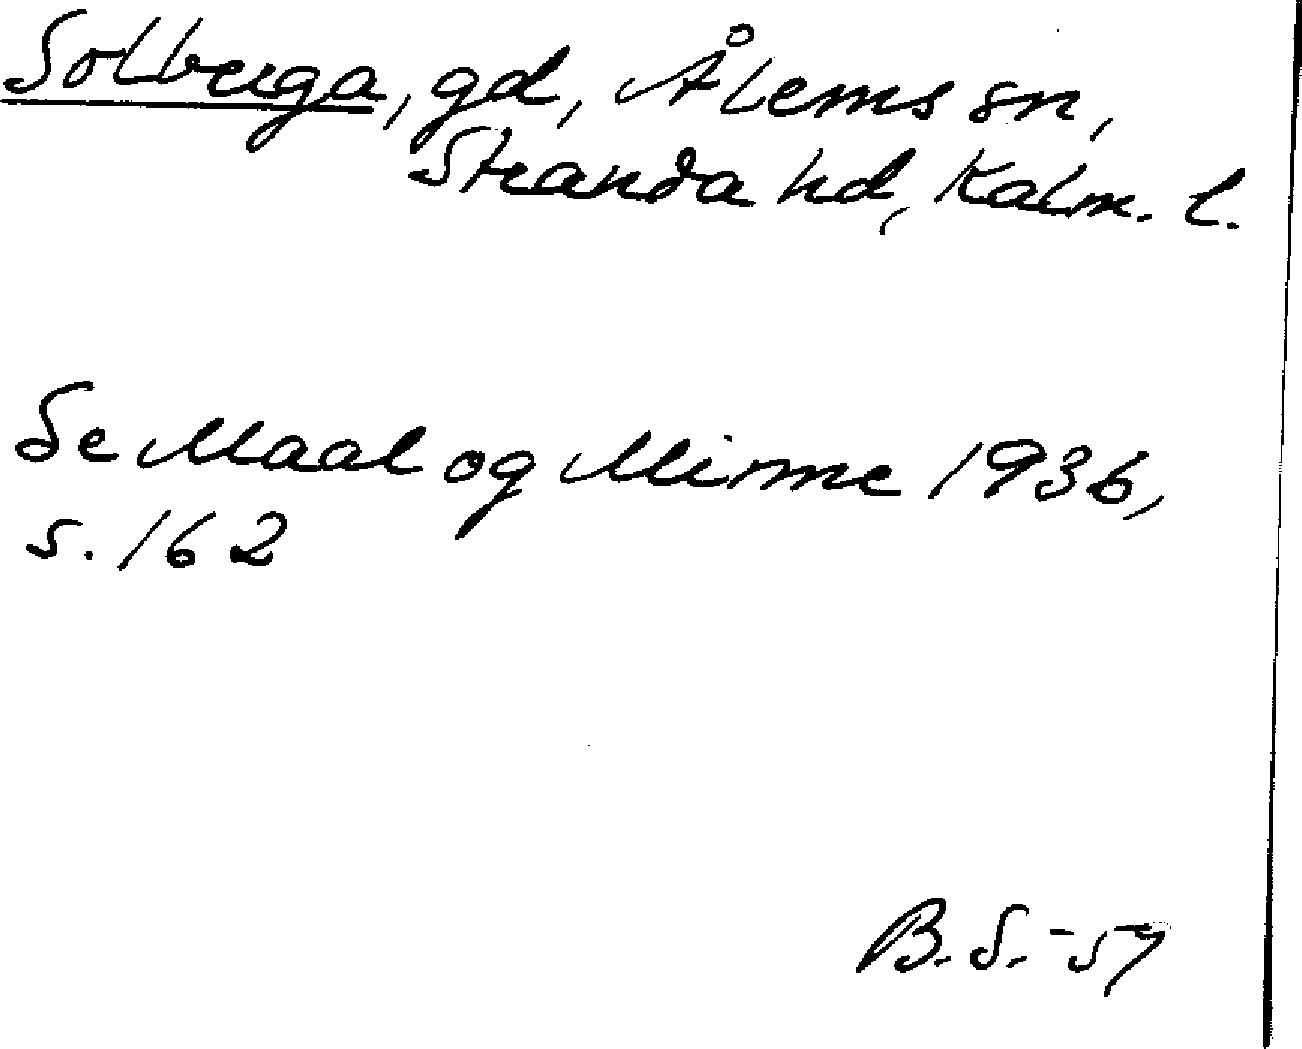 Solberga, gd, Ålems sn,
Stranda hd, Kalm. l.
Se Maal og Minne 1936,
s. 162
B. S. -57